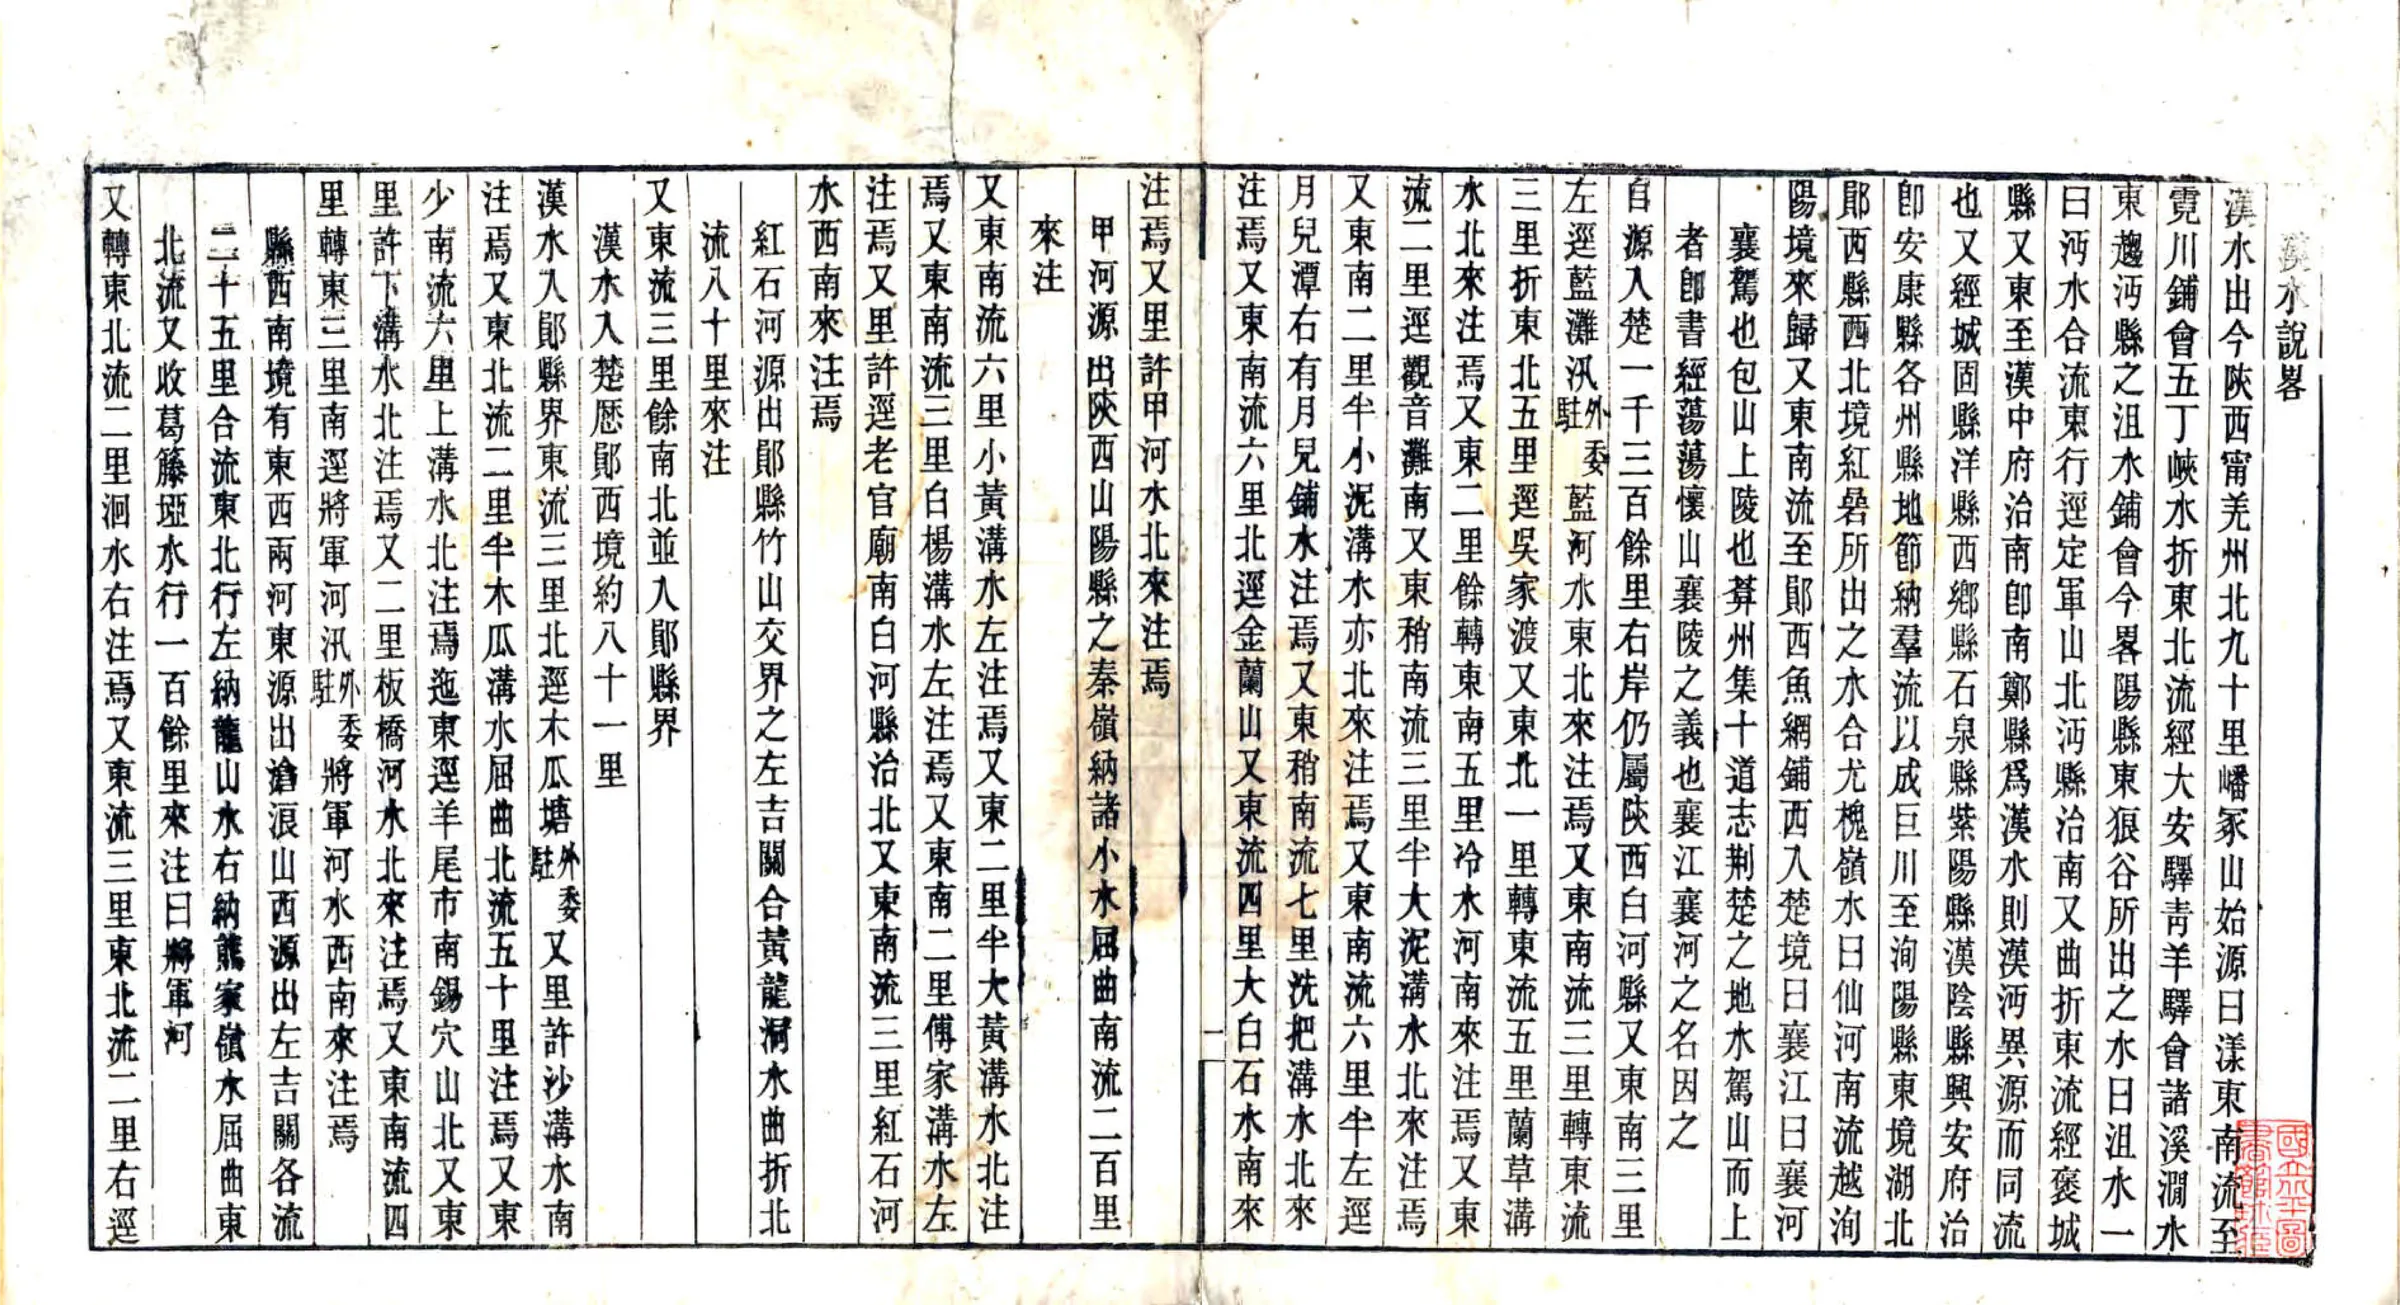 漢水說畧
漢水出今陝西甯羌州北九十里嶓冢山始源曰漾東南流至
霓川鋪會五丁峽水折東北流經大安驛青羊驛會諸溪澗水
東趨沔縣之沮水鋪會今畧陽縣東狼谷所出之水曰沮水一
曰沔水合流東行逕定軍山北沔縣治南又曲折東流經褒城
縣又東至漢中府治南卽南鄭縣爲漢水則漢沔異源而同流
也又經城固縣洋縣西鄉縣石泉縣紫陽縣漢陰縣興安府治
卽安康縣各州縣地節納羣流以成巨川至洵陽縣東境湖北
鄖西縣西北境紅碞所出之水合尤槐嶺水曰仙河南流越洵
陽境來歸又東南流至鄖西魚網鋪西入楚境曰襄江曰襄河
襄駕也包山上陵也葊州集十道志荆楚之地水駕山而上
者卽書經蕩蕩懷山襄陵之義也襄江襄河之名因之
自源入楚一千三百餘里右岸仍屬陝西白河縣又東南三里
左逕藍灘汛外委駐藍河水東北來注焉又東南流三里轉東流
三里折東北五里逕吳家渡又東北一里轉東流五里蘭草溝
水北來注焉又東二里餘轉東南五里冷水河南來注焉又東
流二里逕觀音灘南又東稍南流三里半大泥溝水北來注焉
又東南二里半小泥溝水亦北來注焉又東南流六里半左逕
月兒潭右有月兒鋪水注焉又東稍南流七里洗把溝水北來
注焉又東南流六里北逕金蘭山又東流四里大白石水南來
一
注焉又里許甲河水北來注焉
甲河源出陝西山陽縣之秦嶺納諸小水屈曲南流二百里
來注
又東南流六里小黃溝水左注焉又東二里半大黃溝水北注
焉又東南流三里白楊溝水左注焉又東南二里傅家溝水左
注焉又里許逕老官廟南白河縣治北又東南流三里紅石河
水西南來注焉
紅石河源出鄖縣竹山交界之左吉關合黃龍洞水曲折北
流八十里來注
又東流三里餘南北並入鄖縣界
漢水入楚歷鄖西境約八十一里
漢水入鄖縣界東流三里北逕木瓜塘外委駐又里許沙溝水南
注焉又東北流二里半木瓜溝水屈曲北流五十里注焉又東
少南流六里上溝水北注焉迤東逕羊尾市南錫穴山北又東
里許下溝水北注焉又二里板橋河水北來注焉又東南流四
里轉東三里南逕將軍河汛外委駐將軍河水西南來注焉
縣西南境有東西兩河東源出滄浪山西源出左吉關各流
二十五里合流東北行左納龍山水右納熊家嶺水屈曲東
北流又收葛籐埡水行一百餘里來注曰將軍河
又轉東北流二里洄水右注焉又東流三里東北流二里右逕
國立北平圖書館收藏